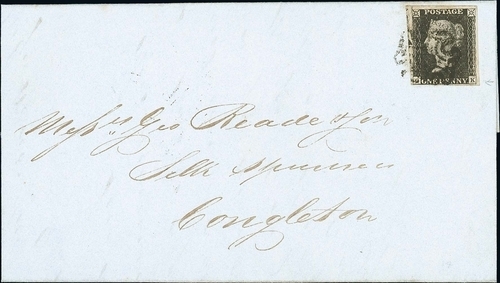 POSTAGE
ONE PENNY
Messrs Geo Reade & Son
Silk Spinners
Congleton